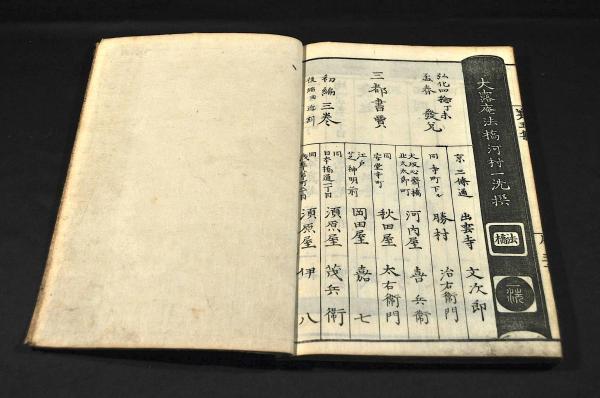 大落庵法橋河村一洗撰
法橋
一洗
弘化四龍丁未
孟春 發兌
三都書賈
初編三巻
京三條通 出雲寺 文次郎
同寺町下ル 勝村 治右衛門
大坂心齋橋
北久太郎町 河内屋 喜兵衛
同
安堂寺町 秋田屋 太右衛門
江戸
芝神明前 岡田屋 嘉七
同
日本橋通一丁目 須原屋 茂兵衛
同
須原屋 伊八